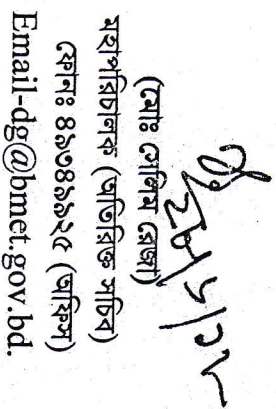 (মোঃ সেলিম রেজা)
মহাপরিচালক (অতিরিক্ত সচিব)
ফোনঃ ৪৯৩৪৯৯২৫ (অফিস)
Email-dg@bmet.gov.bd.